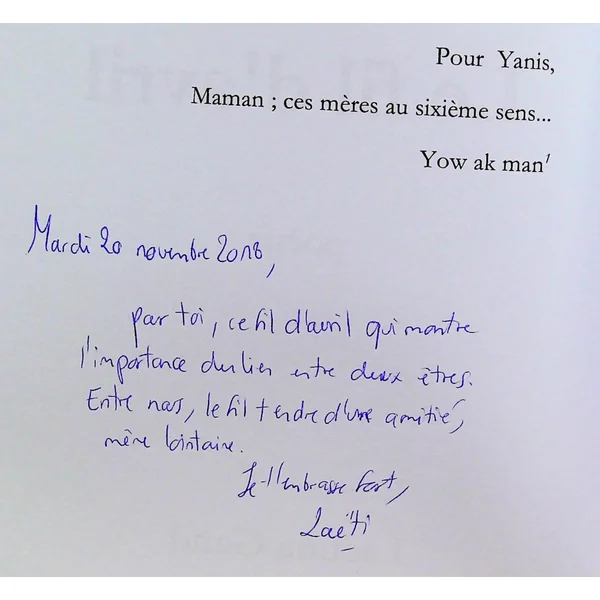 Pour Yanis,
Maman ; ces mères au sixième sens...
Yow ak man¹
Mardi 20 novembre 2018,
par toi, ce fil d'avril qui montre
l'importance du lien entre deux êtres.
Entre nous, le fil tendre d'une amitié,
même lointaine.
Je t'embrasse fort,
Laëti